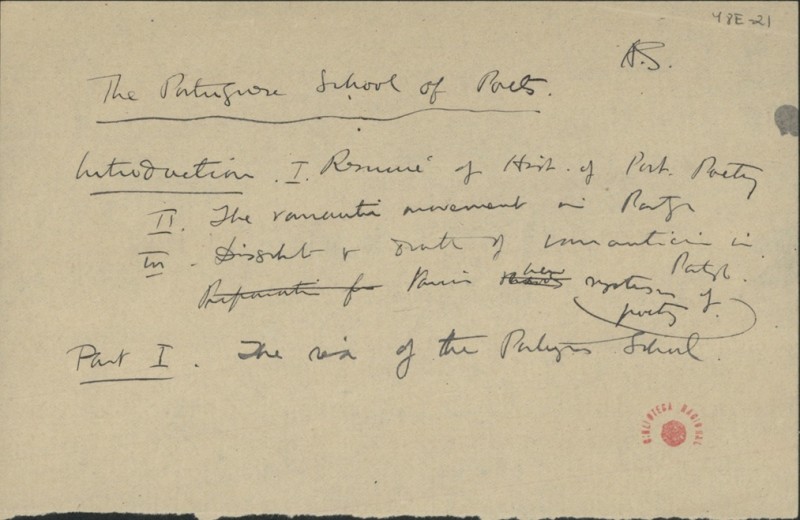 48E-21
A.S.
The Portuguese School of Poets.
Introduction. I. Resumé of Hist. of Port. Poetry
II. The romantic movement in Portgl
III. Dissolut & death of romanticism in Portgl.
Preparation for new systems of poetry.
Part I. The rise of the Portugse School.
BIBLIOTECA NACIONAL